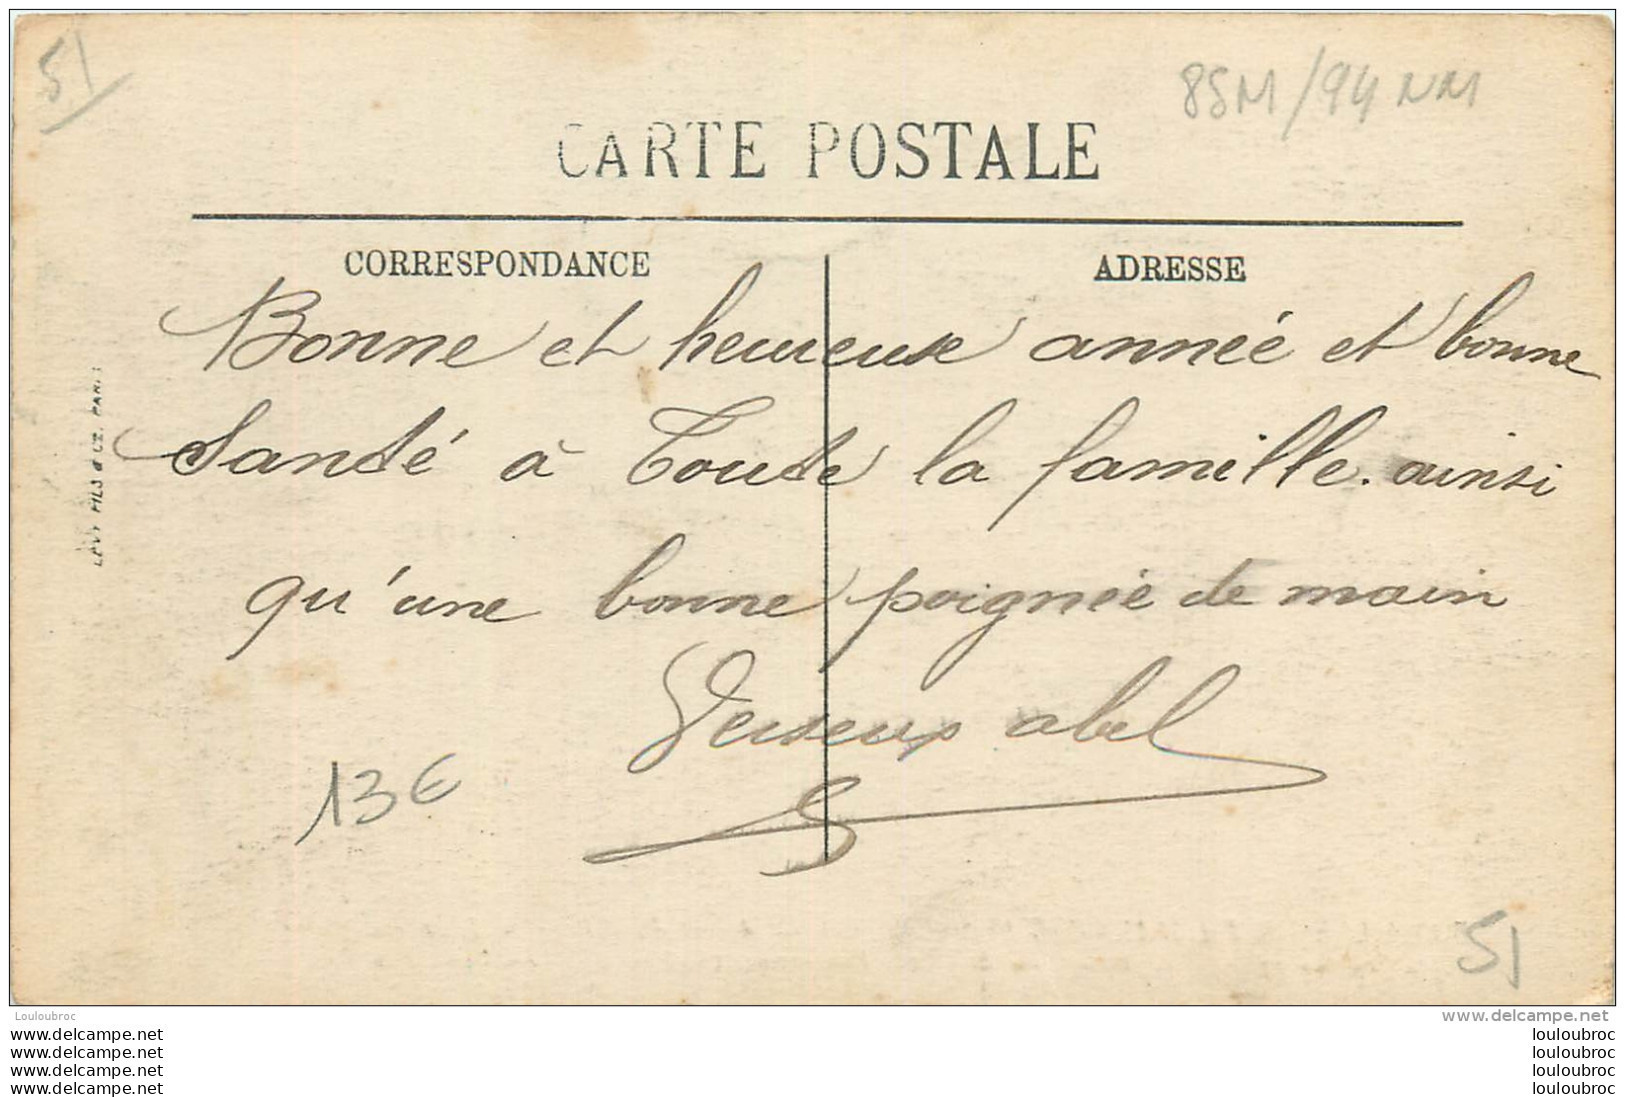 51
85M/94 NM
CARTE POSTALE
CORRESPONDANCE
ADRESSE
Bonne et heureuse année et bonne
Santé à Toute la famille. ainsi
qu'une bonne poignée de main
abel
LEVY FILS & CIE. PARIS
13€
51
Louloubroc
www.delcampe.net
www.delcampe.net
louloubroc
www.delcampe.net
louloubroc
www.delcampe.net
louloubroc
www.delcampe.net
louloubroc